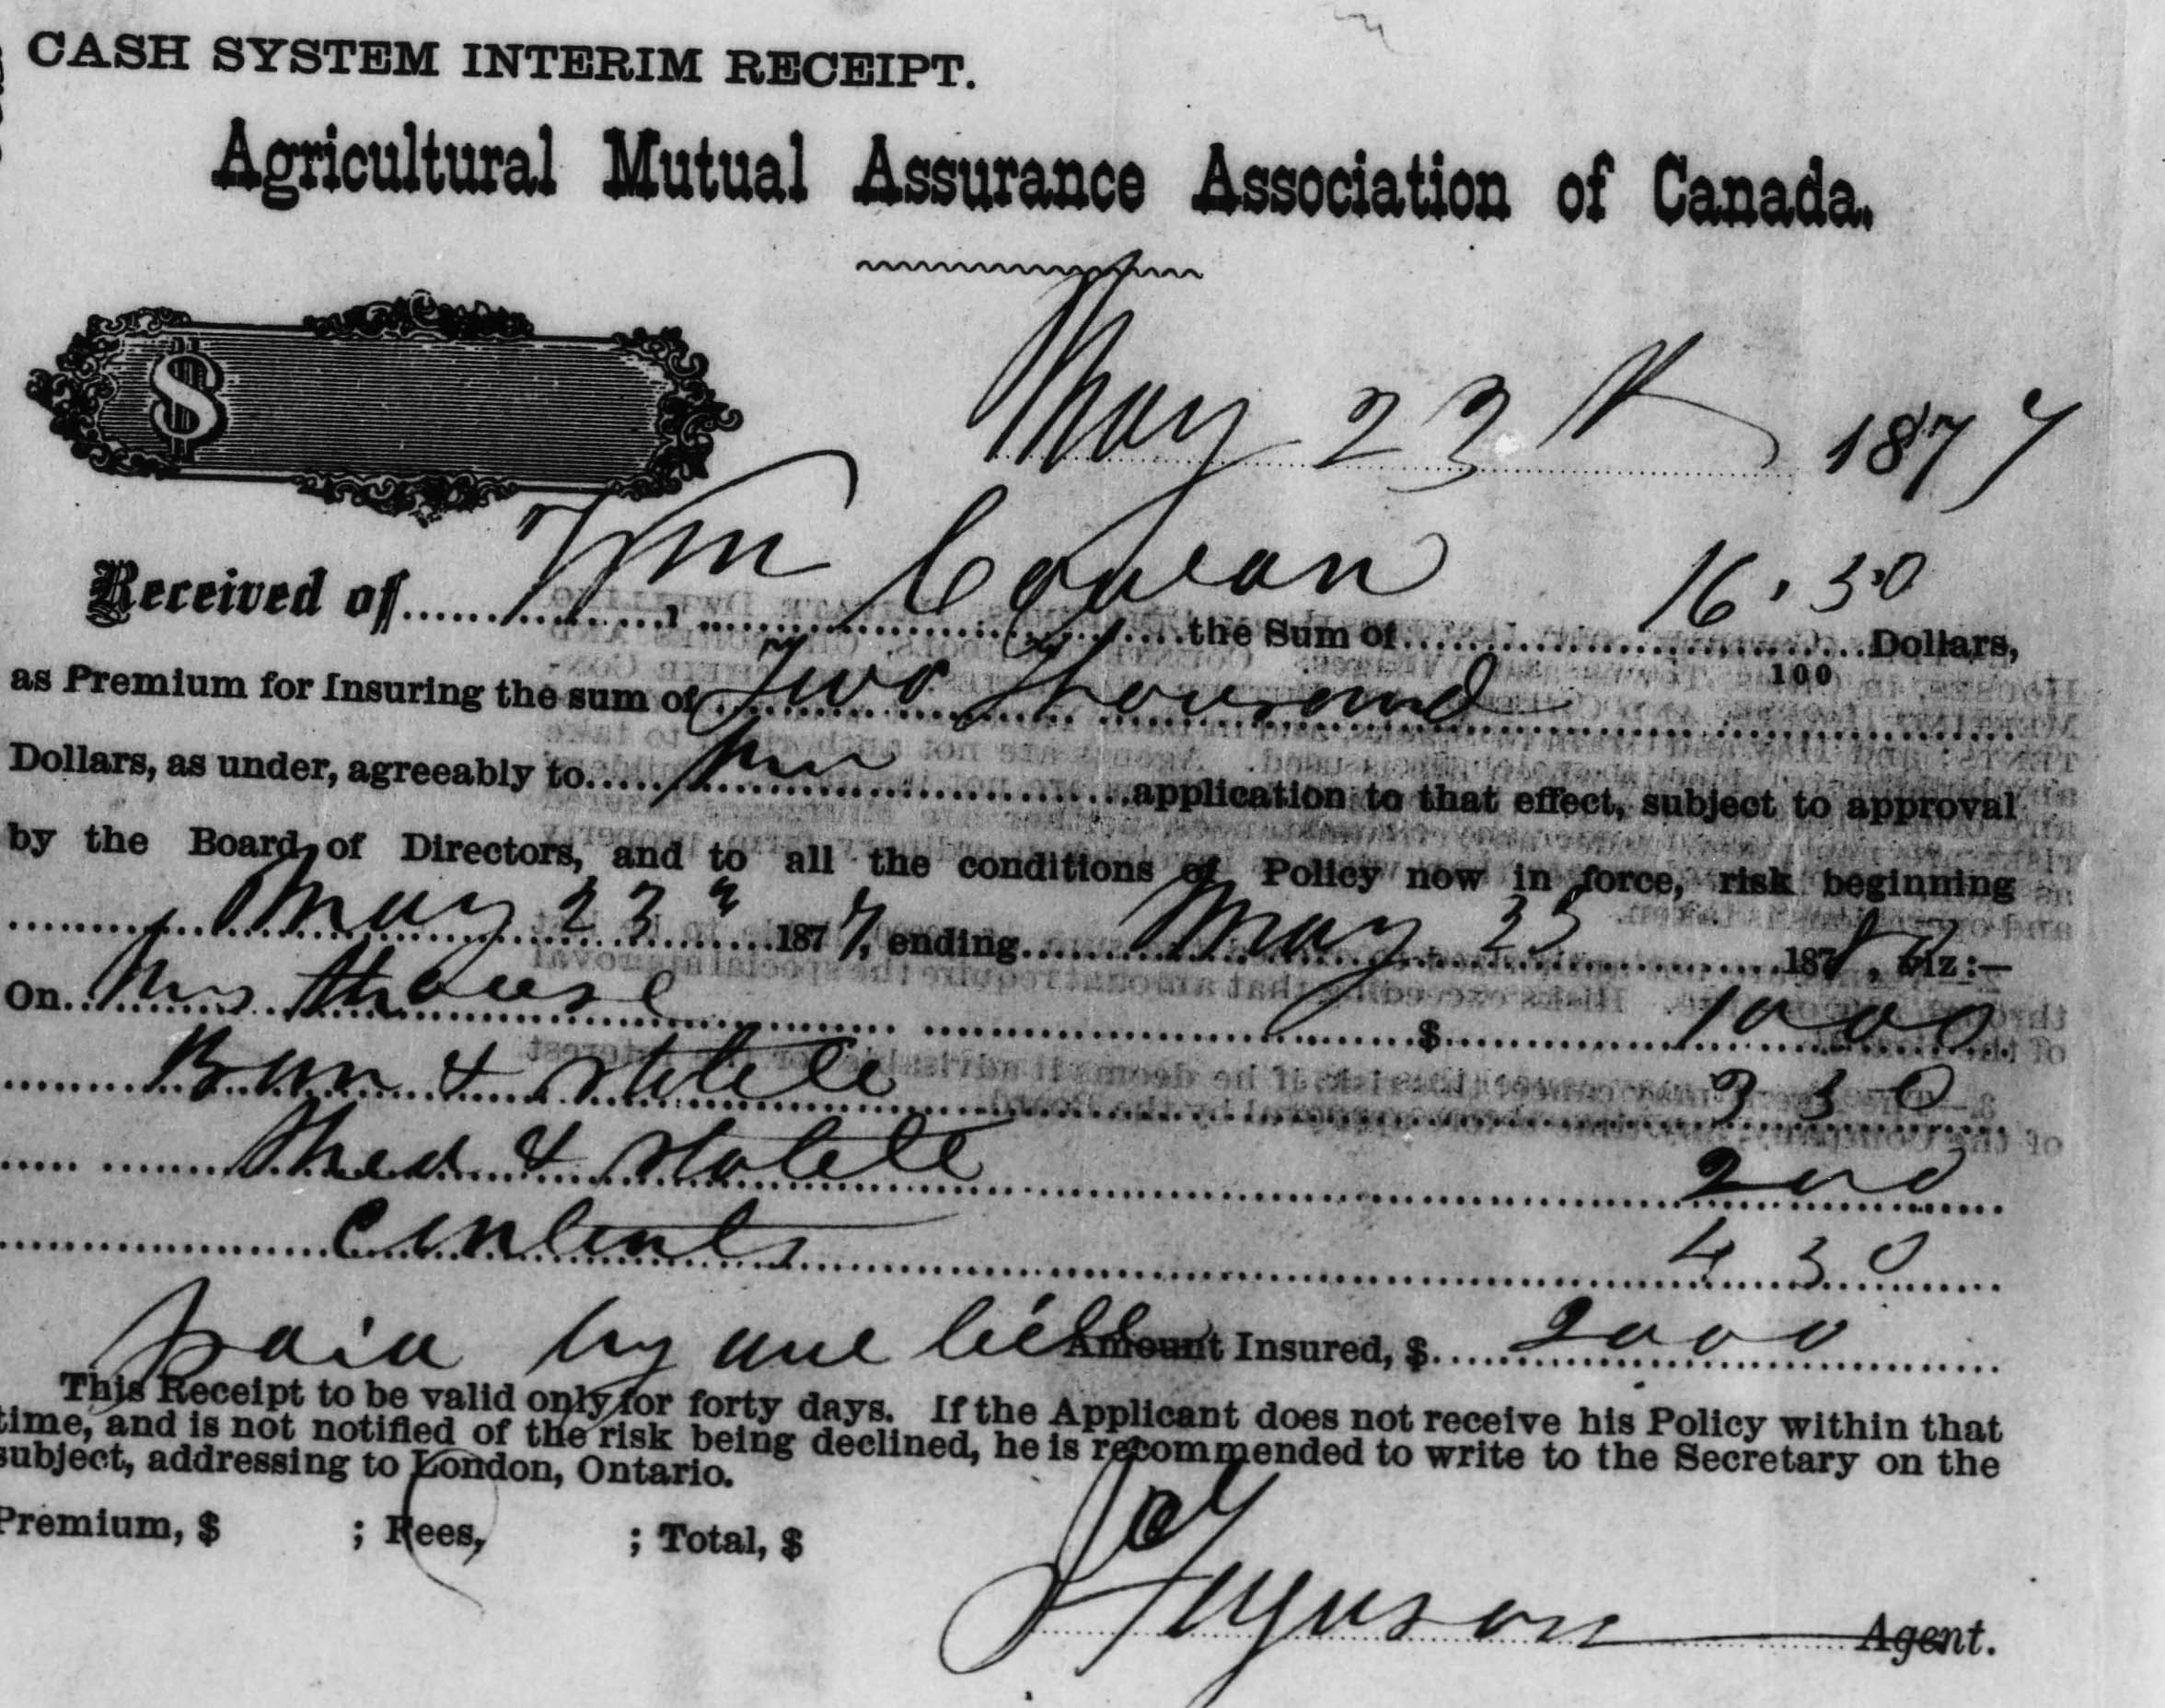 CASH SYSTEM INTERIM RECEIPT.
Agricultural Mutual Assurance Association of Canada.
$
May 23 1877
Received of Wm the Sum of 16.50 Dollars,
100
as Premium for Insuring the sum of Two Thousand
Dollars, as under, agreeably to his application to that effect, subject to approval
by the Board of Directors, and to all the conditions of Policy now in force, risk beginning
May 23 1877, ending May 23 187 , viz:—
On his House $ 1000
Barn & 350
Shed & 200
Contents 450
paid by Amount Insured, $ 2000
This Receipt to be valid only for forty days. If the Applicant does not receive his Policy within that
time, and is not notified of the risk being declined, he is recommended to write to the Secretary on the
subject, addressing to London, Ontario.
Premium, $ ; Fees, ; Total, $
Ferguson Agent.